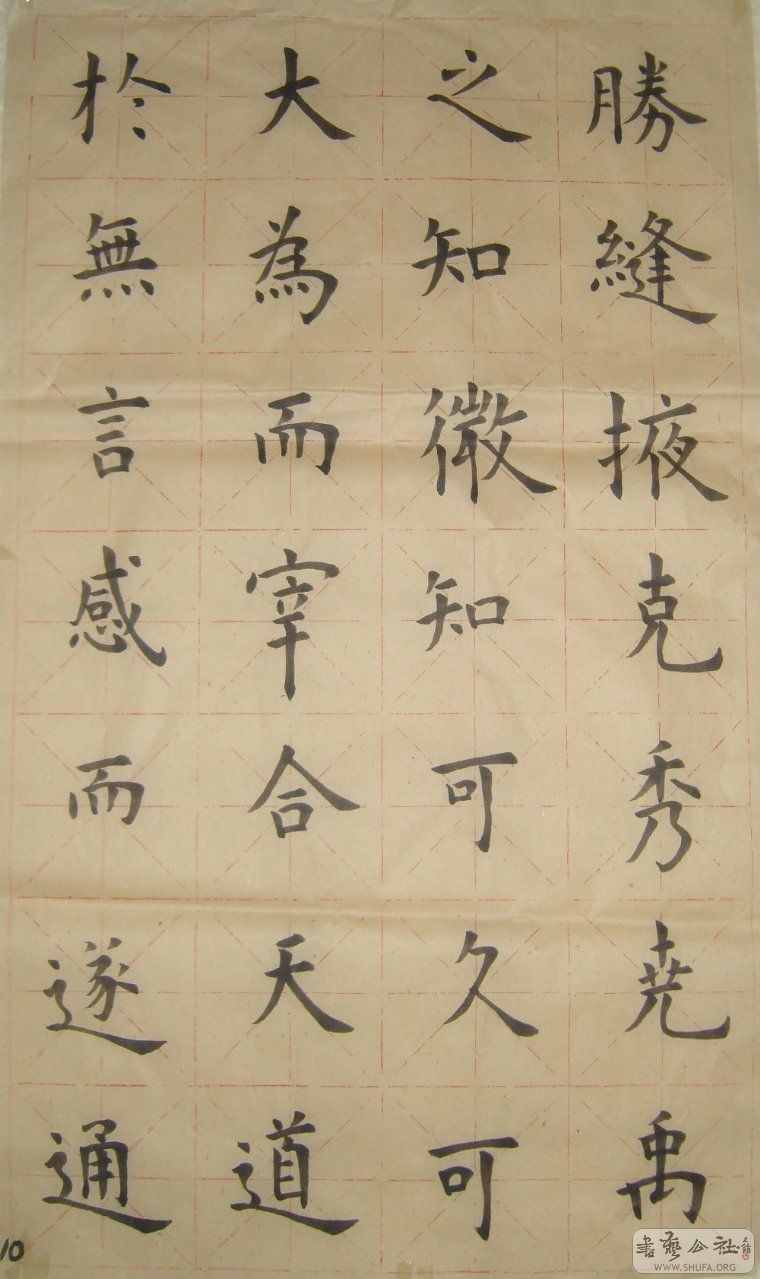 勝縫掖克秀堯禹
之知微知可久可
大為而宰合天道
於無言感而遂通
10
書藝公社
WWW.SHUFA.ORG